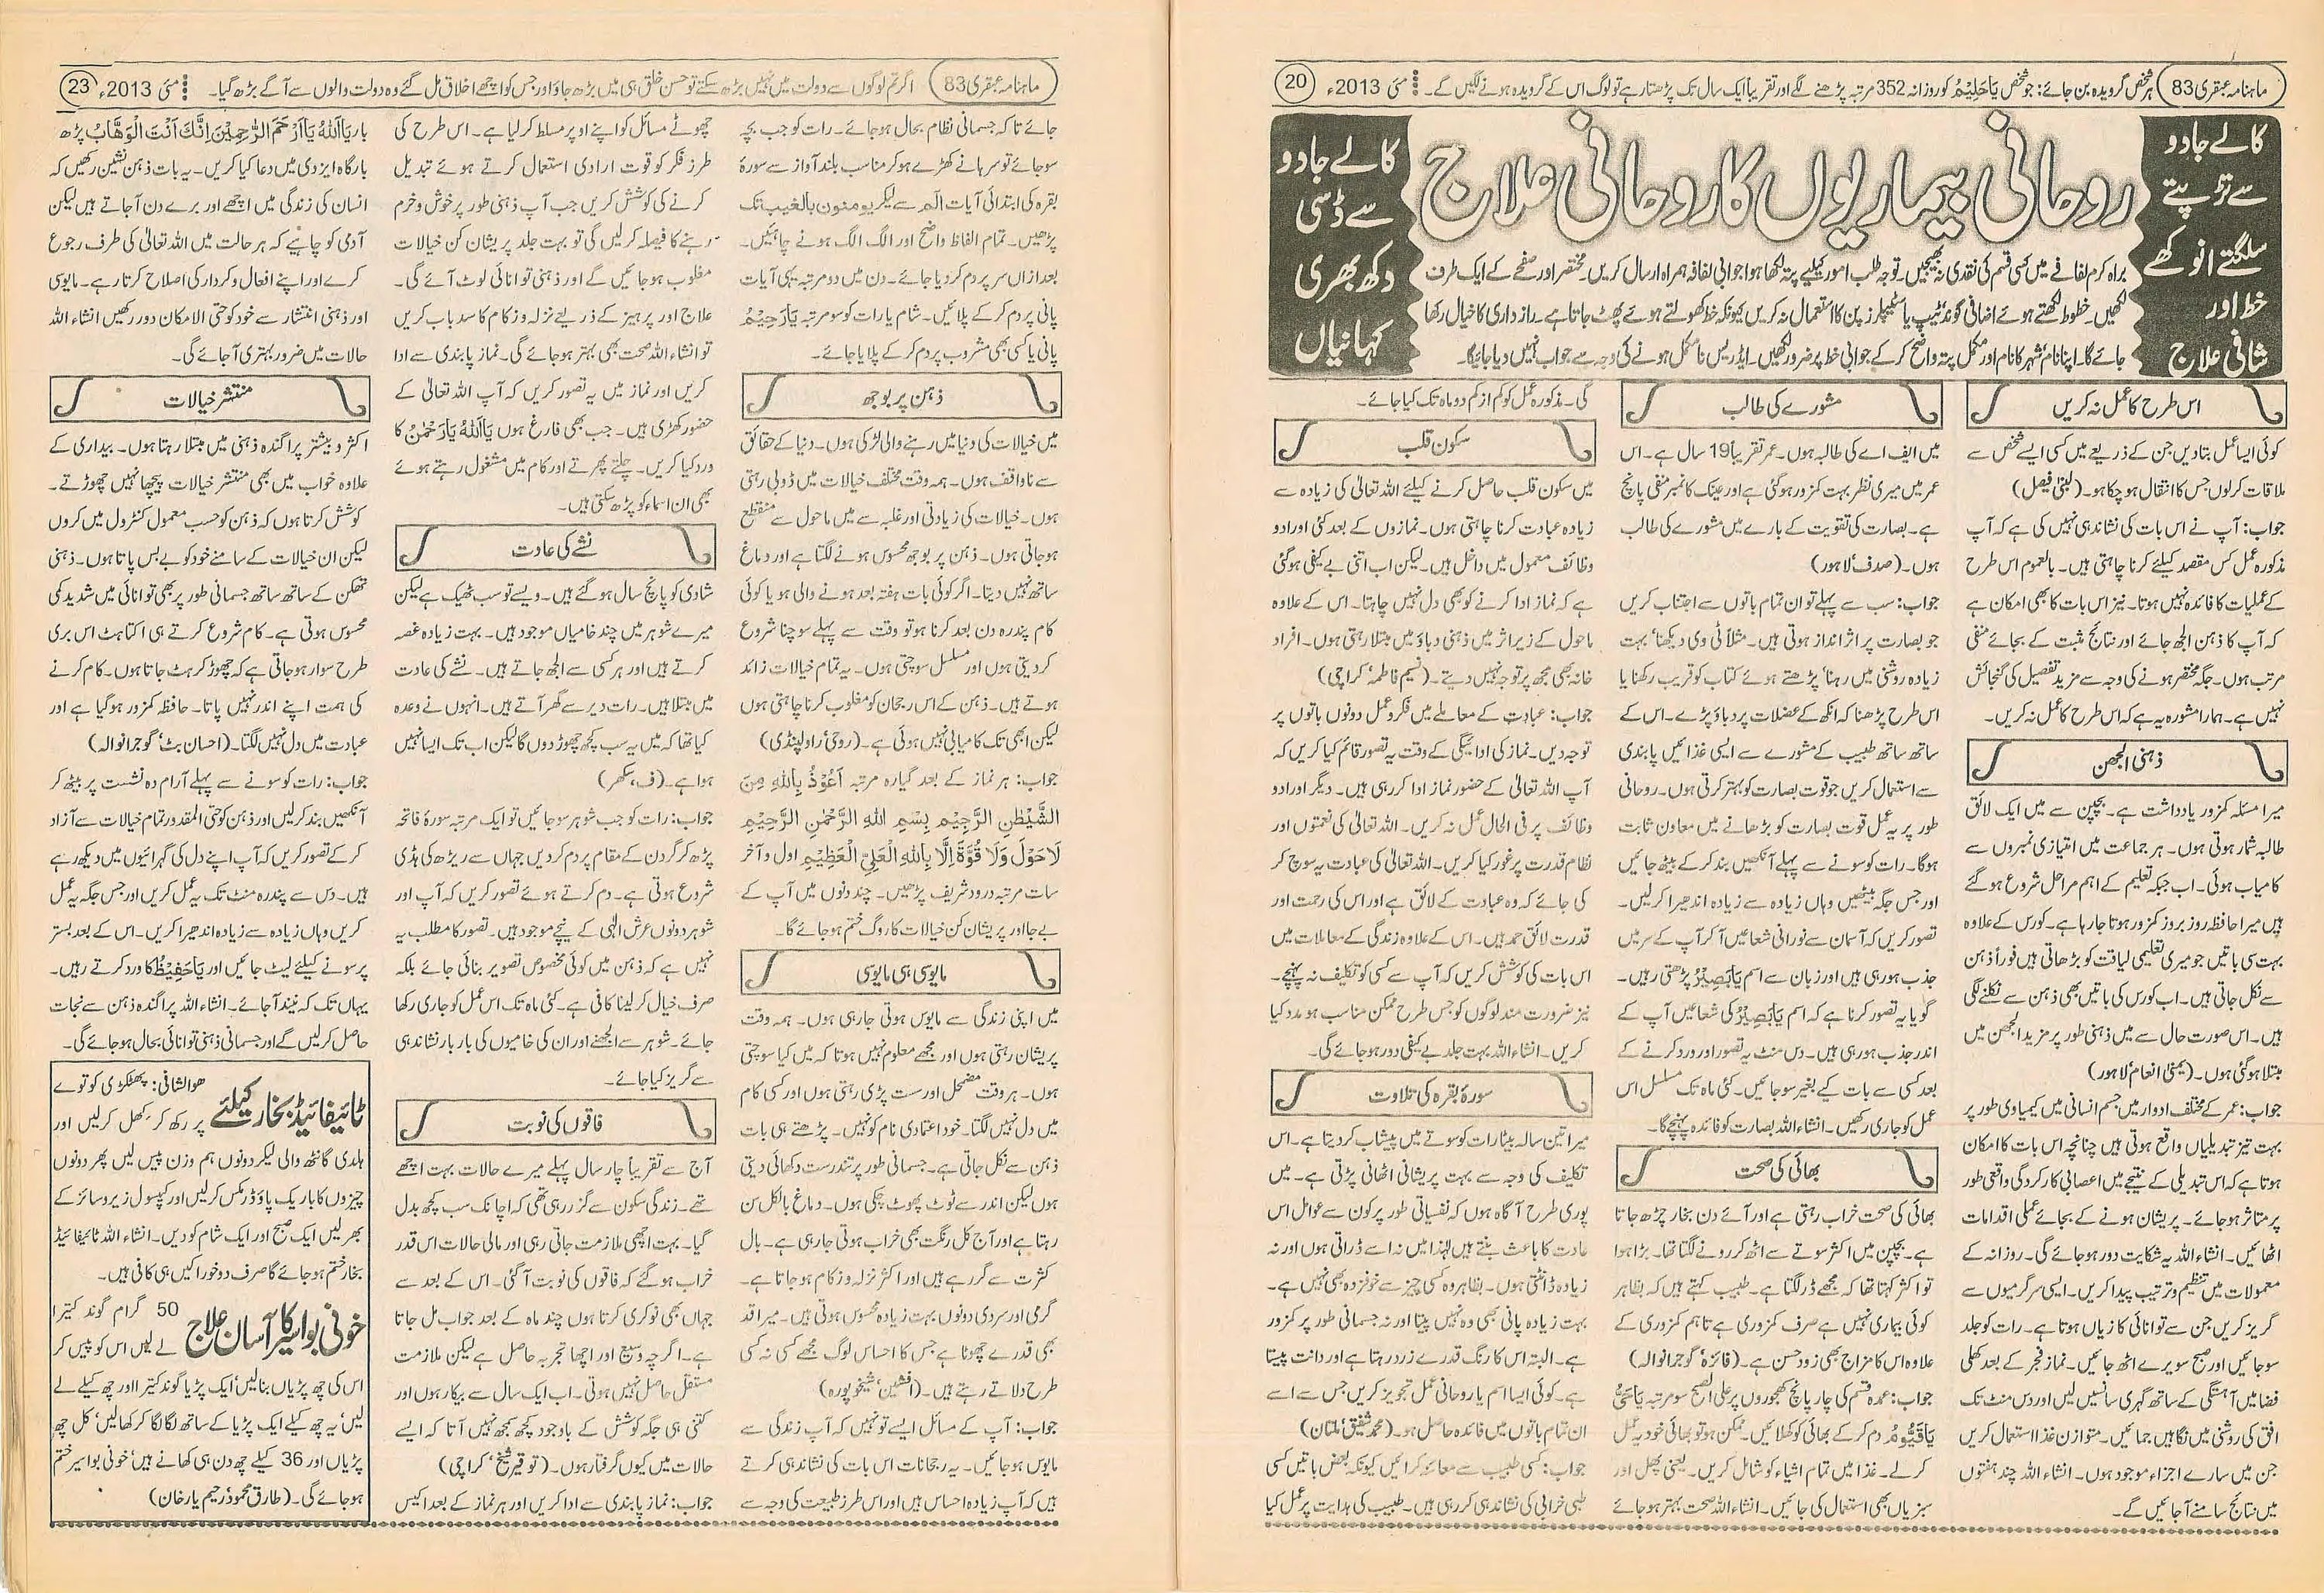 ماہنامہ عبقری 83 ہر شخص گرویدہ بن جائے: جو شخص یَاحَلِیْمُ کو روزانہ 352 مرتبہ پڑھنے لگے اور تقریباً ایک سال تک پڑھتا رہے تو لوگ اس کے گرویدہ ہونے لگیں گے۔ مئی 2013ء 20
کالے جادو
سے تڑپتے
سلگتے انوکھے
خط اور
شافی علاج
روحانی بیماریوں کا روحانی علاج
براہ کرم لفافے میں کسی قسم کی نقدی نہ بھیجیں۔ توجہ طلب امور کیلئے پتہ لکھا ہوا جوابی لفافہ ہمراہ ارسال کریں۔ مختصر اور صفحے کے ایک طرف
لکھیں۔ خطوط لکھتے ہوئے اضافی گوند ٹیپ یا سٹیپلرز پن کا استعمال نہ کریں کیونکہ خط کھولتے ہوئے پھٹ جاتا ہے۔ رازداری کا خیال رکھا
جائے گا۔ اپنا نام شہر کا نام اور مکمل پتہ واضح کر کے جوابی خط پر ضرور لکھیں۔ ایڈریس نامکمل ہونے کی وجہ سے جواب نہیں دیا جائیگا۔
کالے جادو
سے ڈسی
دکھ بھری
کہانیاں
اس طرح کا عمل نہ کریں
کوئی ایسا عمل بتا دیں جن کے ذریعے میں کسی ایسے شخص سے
ملاقات کر لوں جس کا انتقال ہو چکا ہو۔ (لبنیٰ فیصل)
جواب: آپ نے اس بات کی نشاندہی نہیں کی ہے کہ آپ
مذکورہ عمل کس مقصد کیلئے کرنا چاہتی ہیں۔ بالعموم اس طرح
کے عملیات کا فائدہ نہیں ہوتا۔ نیز اس بات کا بھی امکان ہے
کہ آپ کا ذہن الجھ جائے اور نتائج مثبت کے بجائے منفی
مرتب ہوں۔ جگہ مختصر ہونے کی وجہ سے مزید تفصیل کی گنجائش
نہیں ہے۔ ہمارا مشورہ یہ ہے کہ اس طرح کا عمل نہ کریں۔
ذہنی الجھن
میرا مسئلہ کمزور یادداشت ہے۔ بچپن سے میں ایک لائق
طالبہ شمار ہوتی ہوں۔ ہر جماعت میں امتیازی نمبروں سے
کامیاب ہوئی۔ اب جبکہ تعلیم کے اہم مراحل شروع ہو گئے
ہیں میرا حافظہ روز بروز کمزور ہوتا جا رہا ہے۔ کورس کے علاوہ
بہت سی باتیں جو میری تعلیمی لیاقت کو بڑھاتی ہیں فوراً ذہن
سے نکل جاتی ہیں۔ اب کورس کی باتیں بھی ذہن سے نکلنے لگی
ہیں۔ اس صورت حال سے میں ذہنی طور پر مزید الجھن میں
مبتلا ہو گئی ہوں۔ (یمنیٰ انعام لاہور)
جواب: عمر کے مختلف ادوار میں جسم انسانی میں کیمیاوی طور پر
بہت تیز تبدیلیاں واقع ہوتی ہیں چنانچہ اس بات کا امکان
ہوتا ہے کہ اس تبدیلی کے نتیجے میں اعصابی کارکردگی واقعی طور
پر متاثر ہو جائے۔ پریشان ہونے کے بجائے عملی اقدامات
اٹھائیں۔ انشاء اللہ یہ شکایت دور ہو جائے گی۔ روزانہ کے
معمولات میں تنظیم و ترتیب پیدا کریں۔ ایسی سرگرمیوں سے
گریز کریں جن سے توانائی کا زیاں ہوتا ہے۔ رات کو جلد
سو جائیں اور صبح سویرے اٹھ جائیں۔ نماز فجر کے بعد کھلی
فضا میں آہستگی کے ساتھ گہری سانسیں لیں اور دس منٹ تک
افق کی روشنی میں نگاہیں جمائیں۔ متوازن غذا استعمال کریں
جن میں سارے اجزاء موجود ہوں۔ انشاء اللہ چند ہفتوں
میں نتائج سامنے آ جائیں گے۔
مشورے کی طالب
میں ایف اے کی طالبہ ہوں۔ عمر تقریباً 19 سال ہے۔ اس
عمر میں میری نظر بہت کمزور ہو گئی ہے اور عینک کا نمبر منفی پانچ
ہے۔ بصارت کی تقویت کے بارے میں مشورے کی طالب
ہوں۔ (صدف لاہور)
جواب: سب سے پہلے تو ان تمام باتوں سے اجتناب کریں
جو بصارت پر اثر انداز ہوتی ہیں۔ مثلاً ٹی وی دیکھنا، بہت
زیادہ روشنی میں رہنا، پڑھتے ہوئے کتاب کو قریب رکھنا یا
اس طرح پڑھنا کہ آنکھ کے عضلات پر دباؤ پڑے۔ اس کے
ساتھ ساتھ طبیب کے مشورے سے ایسی غذائیں پابندی
سے استعمال کریں جو قوت بصارت کو بہتر کرتی ہوں۔ روحانی
طور پر یہ عمل قوت بصارت کو بڑھانے میں معاون ثابت
ہوگا۔ رات کو سونے سے پہلے آنکھیں بند کر کے بیٹھ جائیں
اور جس جگہ بیٹھیں وہاں زیادہ سے زیادہ اندھیرا کر لیں۔
تصور کریں کہ آسمان سے نورانی شعاعیں آ کر آپ کے سر میں
جذب ہو رہی ہیں اور زبان سے اسم یَابَصِیْرُ پڑھتی رہیں۔
گویا یہ تصور کرنا ہے کہ اسم یَابَصِیْرُ کی شعاعیں آپ کے
اندر جذب ہو رہی ہیں۔ دس منٹ یہ تصور اور ورد کرنے کے
بعد کسی سے بات کے بغیر سو جائیں۔ کئی ماہ تک مسلسل اس
عمل کو جاری رکھیں۔ انشاء اللہ بصارت کو فائدہ پہنچے گا۔
بھائی کی صحت
بھائی کی صحت خراب رہتی ہے اور آئے دن بخار چڑھ جاتا
ہے۔ بچپن میں اکثر سوتے سے اٹھ کر رونے لگتا تھا۔ بڑا ہوا
تو اکثر کہتا تھا کہ مجھے ڈر لگتا ہے۔ طبیب کہتے ہیں کہ بظاہر
کوئی بیماری نہیں ہے صرف کمزوری ہے تاہم کمزوری کے
علاوہ اس کا مزاج بھی زود حسن ہے۔ (فائزہ گوجرانوالہ)
جواب: عمدہ قسم کی چار پانچ کھجوروں پر علی الصبح سو مرتبہ یَاحَیُّ
یَاقَیُّوْمُ دم کر کے بھائی کو کھلائیں۔ ممکن ہو تو بھائی خود یہ عمل
کر لے۔ غذا میں تمام اشیاء کو شامل کریں۔ یعنی پھل اور
سبزیاں بھی استعمال کی جائیں۔ انشاء اللہ صحت بہتر ہو جائے
گی۔ مذکورہ عمل کو کم از کم دو ماہ تک کیا جائے۔
سکون قلب
میں سکون قلب حاصل کرنے کیلئے اللہ تعالیٰ کی زیادہ سے
زیادہ عبادت کرنا چاہتی ہوں۔ نمازوں کے بعد کئی اوراد و
وظائف معمول میں داخل ہیں۔ لیکن اب اتنی بے کیفی ہو گئی
ہے کہ نماز ادا کرنے کو بھی دل نہیں چاہتا۔ اس کے علاوہ
ماحول کے زیر اثر میں ذہنی دباؤ میں مبتلا رہتی ہوں۔ افراد
خانہ بھی مجھ پر توجہ نہیں دیتے۔ (نسیم فاطمہ کراچی)
جواب: عبادت کے معاملے میں فکر و عمل دونوں باتوں پر
توجہ دیں۔ نماز کی ادائیگی کے وقت یہ تصور قائم کیا کریں کہ
آپ اللہ تعالیٰ کے حضور نماز ادا کر رہی ہیں۔ دیگر اوراد و
وظائف پر فی الحال عمل نہ کریں۔ اللہ تعالیٰ کی نعمتوں اور
نظام قدرت پر غور کیا کریں۔ اللہ تعالیٰ کی عبادت یہ سوچ کر
کی جائے کہ وہ عبادت کے لائق ہے اور اس کی رحمت اور
قدرت لائق حمد ہیں۔ اس کے علاوہ زندگی کے معاملات میں
اس بات کی کوشش کریں کہ آپ سے کسی کو تکلیف نہ پہنچے۔
نیز ضرورت مند لوگوں کو جس طرح ممکن مناسب ہو مدد کیا
کریں۔ انشاء اللہ بہت جلد بے کیفی دور ہو جائے گی۔
سورۂ بقرہ کی تلاوت
میرا تین سالہ بیٹا رات کو سوتے میں پیشاب کر دیتا ہے۔ اس
تکلیف کی وجہ سے بہت پریشانی اٹھانی پڑتی ہے۔ میں
پوری طرح آگاہ ہوں کہ نفسیاتی طور پر کون سے عوامل اس
عادت کا باعث بنتے ہیں لہٰذا میں نہ اسے ڈراتی ہوں اور نہ
زیادہ ڈانٹتی ہوں۔ بظاہر وہ کسی چیز سے خوفزدہ بھی نہیں ہے۔
بہت زیادہ پانی بھی وہ نہیں پیتا اور نہ جسمانی طور پر کمزور
ہے۔ البتہ اس کا رنگ قدرے زرد رہتا ہے اور دانت پیستا
ہے۔ کوئی ایسا اسم یا روحانی عمل تجویز کریں جس سے اسے
ان تمام باتوں میں فائدہ حاصل ہو۔ (محمد شفیق ملتان)
جواب: کسی طبیب سے معائنہ کرائیں کیونکہ بعض باتیں کسی
طبی خرابی کی نشاندہی کر رہی ہیں۔ طبیب کی ہدایت پر عمل کیا
ماہنامہ عبقری 83 اگر تم لوگوں سے دولت میں نہیں بڑھ سکتے تو حسن خلق ہی میں بڑھ جاؤ اور جس کو اچھے اخلاق مل گئے وہ دولت والوں سے آگے بڑھ گیا۔ مئی 2013ء 23
جائے تاکہ جسمانی نظام بحال ہو جائے۔ رات کو جب بچہ
سو جائے تو سرہانے کھڑے ہو کر مناسب بلند آواز سے سورۂ
بقرہ کی ابتدائی آیات الٓم سے لیکر یومنون بالغیب تک
پڑھیں۔ تمام الفاظ واضح اور الگ الگ ہونے چاہئیں۔
بعد ازاں سر پر دم کر دیا جائے۔ دن میں دو مرتبہ یہی آیات
پانی پر دم کر کے پلائیں۔ شام یا رات کو سو مرتبہ یَارَحِیْمُ
پانی یا کسی بھی مشروب پر دم کر کے پلایا جائے۔
ذہن پر بوجھ
میں خیالات کی دنیا میں رہنے والی لڑکی ہوں۔ دنیا کے حقائق
سے ناواقف ہوں۔ ہمہ وقت مختلف خیالات میں ڈوبی رہتی
ہوں۔ خیالات کی زیادتی اور غلبہ سے میں ماحول سے منقطع
ہو جاتی ہوں۔ ذہن پر بوجھ محسوس ہونے لگتا ہے اور دماغ
ساتھ نہیں دیتا۔ اگر کوئی بات ہفتہ بعد ہونے والی ہو یا کوئی
کام پندرہ دن بعد کرنا ہو تو وقت سے پہلے سوچنا شروع
کر دیتی ہوں اور مسلسل سوچتی ہوں۔ یہ تمام خیالات زائد
ہوتے ہیں۔ ذہن کے اس رجحان کو مغلوب کرنا چاہتی ہوں
لیکن ابھی تک کامیابی نہیں ہوئی ہے۔ (روحی راولپنڈی)
جواب: ہر نماز کے بعد گیارہ مرتبہ اَعُوْذُ بِاللہِ مِنَ
الشَّیْطٰنِ الرَّجِیْمِ بِسْمِ اللہِ الرَّحْمٰنِ الرَّحِیْمِ
لَاحَوْلَ وَلَا قُوَّۃَ اِلَّا بِاللہِ الْعَلِیِّ الْعَظِیْمِ اول و آخر
سات مرتبہ درود شریف پڑھیں۔ چند دنوں میں آپ کے
بے جا اور پریشان کن خیالات کا روگ ختم ہو جائے گا۔
مایوسی ہی مایوسی
میں اپنی زندگی سے مایوس ہوتی جا رہی ہوں۔ ہمہ وقت
پریشان رہتی ہوں اور مجھے معلوم نہیں ہوتا کہ میں کیا سوچتی
ہوں۔ ہر وقت مضمحل اور سست پڑی رہتی ہوں اور کسی کام
میں دل نہیں لگتا۔ خود اعتمادی نام کو نہیں۔ پڑھتے ہی بات
ذہن سے نکل جاتی ہے۔ جسمانی طور پر تندرست دکھائی دیتی
ہوں لیکن اندر سے ٹوٹ پھوٹ چکی ہوں۔ دماغ بالکل سن
رہتا ہے اور آج کل رنگت بھی خراب ہوتی جا رہی ہے۔ بال
کثرت سے گر رہے ہیں اور اکثر نزلہ و زکام ہو جاتا ہے۔
گرمی اور سردی دونوں بہت زیادہ محسوس ہوتی ہیں۔ میرا قد
بھی قدرے چھوٹا ہے جس کا احساس لوگ مجھے کسی نہ کسی
طرح دلاتے رہتے ہیں۔ (افشین شیخوپورہ)
جواب: آپ کے مسائل ایسے تو نہیں کہ آپ زندگی سے
مایوس ہو جائیں۔ یہ رجحانات اس بات کی نشاندہی کرتے
ہیں کہ آپ زیادہ احساس ہیں اور اس طرز طبیعت کی وجہ سے
چھوٹے مسائل کو اپنے اوپر مسلط کر لیا ہے۔ اس طرح کی
طرز فکر کو قوت ارادی استعمال کرتے ہوئے تبدیل
کرنے کی کوشش کریں جب آپ ذہنی طور پر خوش و خرم
رہنے کا فیصلہ کر لیں گی تو بہت جلد پریشان کن خیالات
مغلوب ہو جائیں گے اور ذہنی توانائی لوٹ آئے گی۔
علاج اور پرہیز کے ذریعے نزلہ و زکام کا سدباب کریں
تو انشاء اللہ صحت بھی بہتر ہو جائے گی۔ نماز پابندی سے ادا
کریں اور نماز میں یہ تصور کریں کہ آپ اللہ تعالیٰ کے
حضور کھڑی ہیں۔ جب بھی فارغ ہوں یَااَللہُ یَارَحْمٰنُ کا
ورد کیا کریں۔ چلتے پھرتے اور کام میں مشغول رہتے ہوئے
بھی ان اسماء کو پڑھ سکتی ہیں۔
نشے کی عادت
شادی کو پانچ سال ہو گئے ہیں۔ ویسے تو سب ٹھیک ہے لیکن
میرے شوہر میں چند خامیاں موجود ہیں۔ بہت زیادہ غصہ
کرتے ہیں اور ہر کسی سے الجھ جاتے ہیں۔ نشے کی عادت
میں مبتلا ہیں۔ رات دیر سے گھر آتے ہیں۔ انہوں نے وعدہ
کیا تھا کہ میں یہ سب کچھ چھوڑ دوں گا لیکن اب تک ایسا نہیں
ہوا ہے۔ (ف، سکھر)
جواب: رات کو جب شوہر سو جائیں تو ایک مرتبہ سورۂ فاتحہ
پڑھ کر گردن کے مقام پر دم کر دیں جہاں سے ریڑھ کی ہڈی
شروع ہوتی ہے۔ دم کرتے ہوئے تصور کریں کہ آپ اور
شوہر دونوں عرش الٰہی کے نیچے موجود ہیں۔ تصور کا مطلب یہ
نہیں ہے کہ ذہن میں کوئی مخصوص تصویر بنائی جائے بلکہ
صرف خیال کر لینا کافی ہے۔ کئی ماہ تک اس عمل کو جاری رکھا
جائے۔ شوہر سے الجھنے اور ان کی خامیوں کی بار بار نشاندہی
سے گریز کیا جائے۔
فاقوں کی نوبت
آج سے تقریباً چار سال پہلے میرے حالات بہت اچھے
تھے۔ زندگی سکون سے گزر رہی تھی کہ اچانک سب کچھ بدل
گیا۔ بہت اچھی ملازمت جاتی رہی اور مالی حالات اس قدر
خراب ہو گئے کہ فاقوں کی نوبت آ گئی۔ اس کے بعد سے
جہاں بھی نوکری کرتا ہوں چند ماہ کے بعد جواب مل جاتا
ہے۔ اگرچہ وسیع اور اچھا تجربہ حاصل ہے لیکن ملازمت
مستقل حاصل نہیں ہوتی۔ اب ایک سال سے بیکار ہوں اور
کتنی ہی جگہ کوشش کے باوجود کچھ سمجھ نہیں آتا کہ ایسے
حالات میں کیوں گرفتار ہوں۔ (توقیر شیخ، کراچی)
جواب: نماز پابندی سے ادا کریں اور ہر نماز کے بعد اکیس
بار یَااَللہُ یَااَرْحَمَ الرّٰحِمِیْنَ اِنَّکَ اَنْتَ الْوَھَّابُ پڑھ
بارگاہ ایزدی میں دعا کیا کریں۔ یہ بات ذہن نشین رکھیں کہ
انسان کی زندگی میں اچھے اور برے دن آ جاتے ہیں لیکن
آدمی کو چاہیے کہ ہر حالت میں اللہ تعالیٰ کی طرف رجوع
کرے اور اپنے افعال و کردار کی اصلاح کرتا رہے۔ مایوسی
اور ذہنی انتشار سے خود کو حتی الامکان دور رکھیں انشاء اللہ
حالات میں ضرور بہتری آ جائے گی۔
منتشر خیالات
اکثر و بیشتر پراگندہ ذہنی میں مبتلا رہتا ہوں۔ بیداری کے
علاوہ خواب میں بھی منتشر خیالات پیچھا نہیں چھوڑتے۔
کوشش کرتا ہوں کہ ذہن کو حسب معمول کنٹرول میں کروں
لیکن ان خیالات کے سامنے خود کو بے بس پاتا ہوں۔ ذہنی
تھکن کے ساتھ ساتھ جسمانی طور پر بھی توانائی میں شدید کمی
محسوس ہوتی ہے۔ کام شروع کرتے ہی اکتاہٹ اس بری
طرح سوار ہو جاتی ہے کہ چھوڑ کر ہٹ جاتا ہوں۔ کام کرنے
کی ہمت اپنے اندر نہیں پاتا۔ حافظہ کمزور ہو گیا ہے اور
عبادت میں دل نہیں لگتا۔ (احسان بٹ گوجرانوالہ)
جواب: رات کو سونے سے پہلے آرام دہ نشست پر بیٹھ کر
آنکھیں بند کر لیں اور ذہن کو حتی المقدور تمام خیالات سے آزاد
کر کے تصور کریں کہ آپ اپنے دل کی گہرائیوں میں دیکھ رہے
ہیں۔ دس سے پندرہ منٹ تک یہ عمل کریں اور جس جگہ یہ عمل
کریں وہاں زیادہ سے زیادہ اندھیرا کریں۔ اس کے بعد بستر
پر سونے کیلئے لیٹ جائیں اور یَاحَفِیْظُ کا ورد کرتے رہیں۔
یہاں تک کہ نیند آ جائے۔ انشاء اللہ پراگندہ ذہن سے نجات
حاصل کر لیں گے اور جسمانی ذہنی توانائی بحال ہو جائے گی۔
ٹائیفائیڈ بخار کیلئے
ھوالشافی: پھٹکڑی کو توے
پر رکھ کر کھل کر لیں اور
ہلدی گانٹھ والی لیکر دونوں ہم وزن پیس لیں پھر دونوں
چیزوں کا باریک پاؤڈر مکس کر لیں اور کیپسول زیرو سائز کے
بھر لیں ایک صبح اور ایک شام کو دیں۔ انشاء اللہ ٹائیفائیڈ
بخار ختم ہو جائے گا صرف دو خوراکیں ہی کافی ہیں۔
خونی بواسیر کا آسان علاج
50 گرام گوند کتیرا
لے لیں اس کو پیس کر
اس کی چھ پڑیاں بنا لیں ایک پڑیا گوند کتیرا اور چھ کیلے لے
لیں یہ چھ کیلے ایک پڑیا کے ساتھ لگا لگا کر کھا لیں کل چھ
پڑیاں اور 36 کیلے چھ دن ہی کھانے ہیں خونی بواسیر ختم
ہو جائے گی۔ (طارق محمود رحیم یار خان)